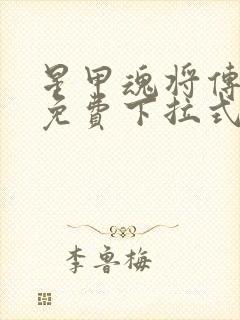 星甲魂将傳
免費下拉式
李魯梅